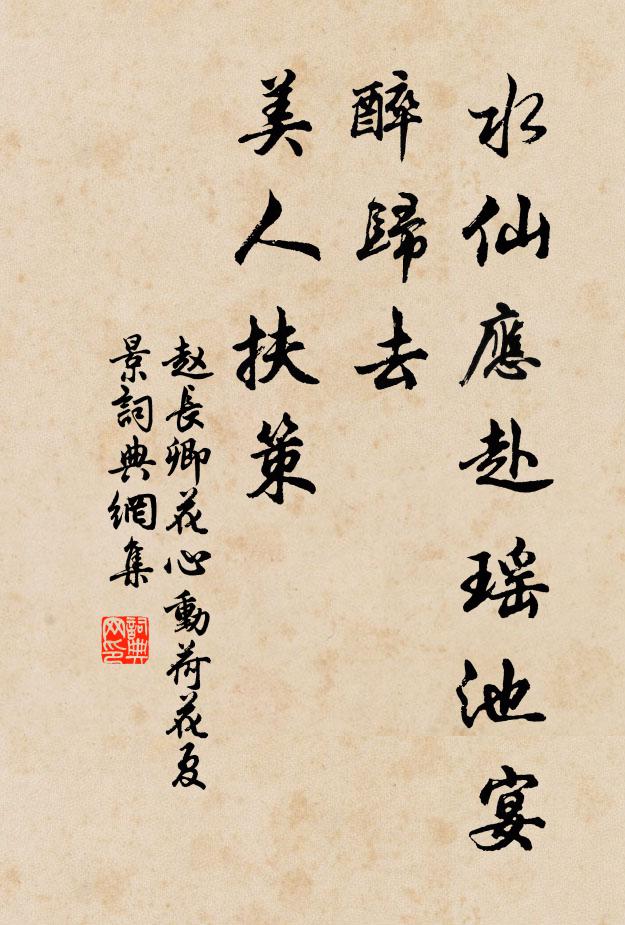 水仙應赴瑶池宴
醉歸去
美人扶策
赵長卿花心動荷花夏
景詞典網集
詞典網印